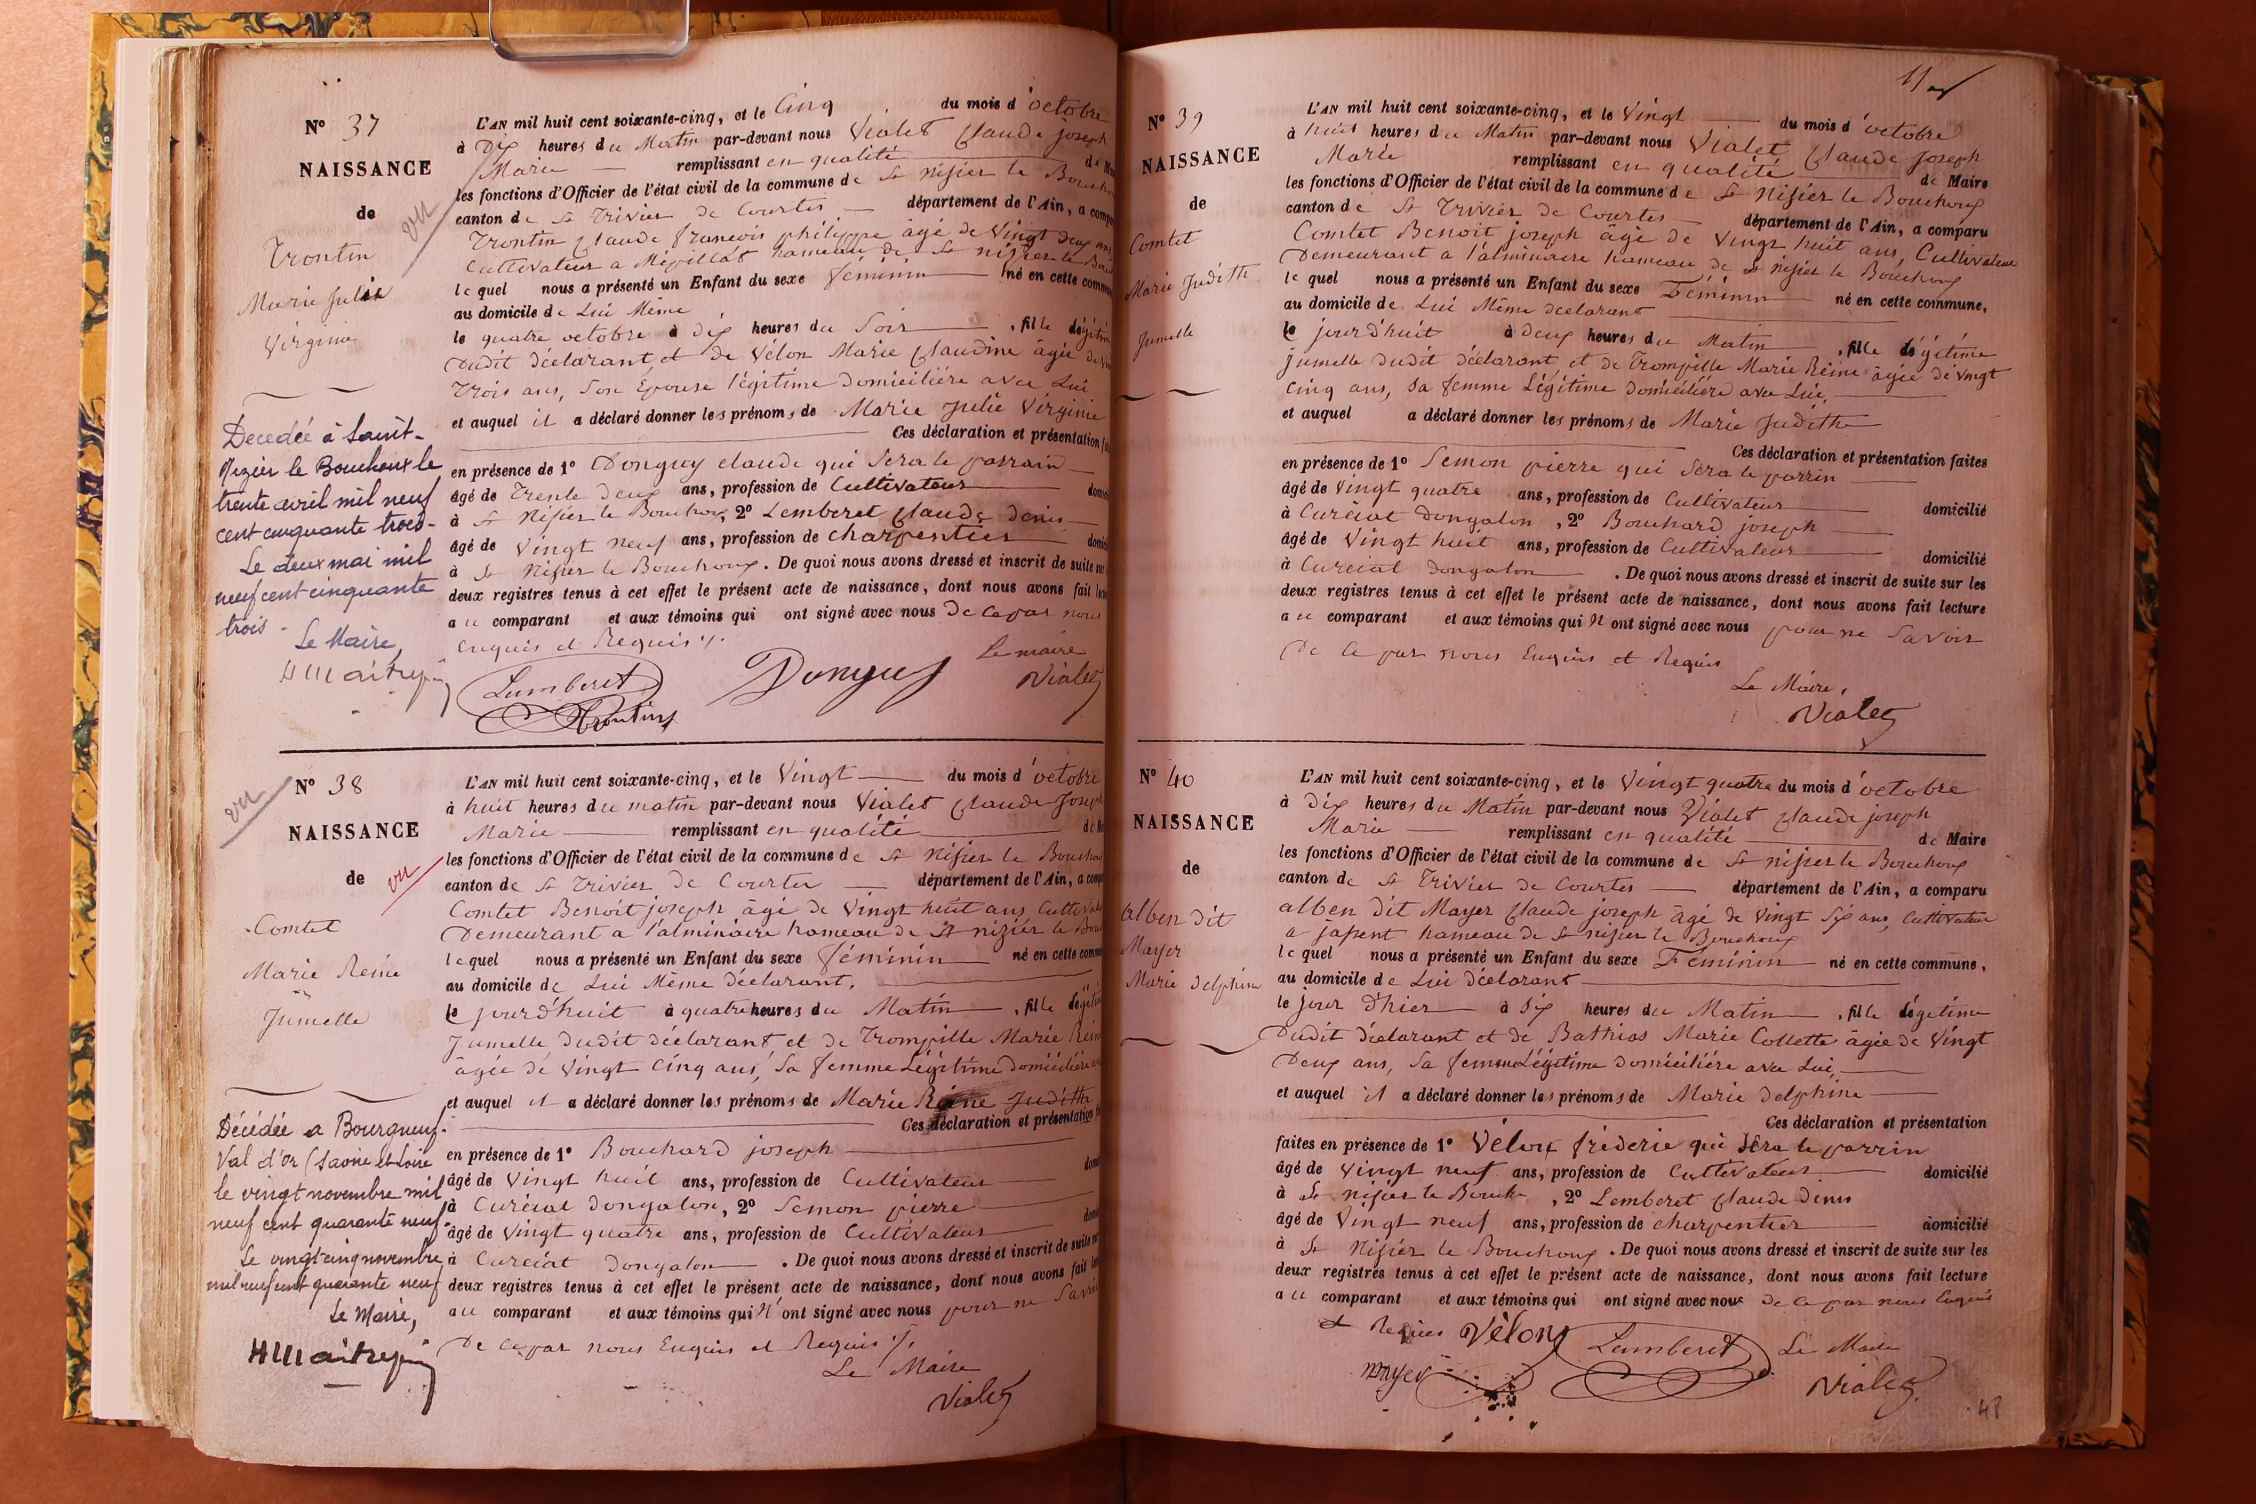 N° 37
NAISSANCE
de
vu
Trontin
Marie Julie
Virginie
Decedée à Saint-
Nizier le Bouchoux le
trente avril mil neuf
cent cinquante trois -
Le deux mai mil
neuf cent cinquante
trois -
Le Maire,
L'AN mil huit cent soixante-cinq, et le Cinq du mois d'octobre
à Dix heures du Matin par-devant nous Vialet Claude joseph
Marie remplissant en qualité de
les fonctions d'Officier de l'état civil de la commune de St Nisier le
canton de St Trivier de Courtes département de l'Ain, a
Trontin Claude francois philippe âgé de Vingt deux ans
Cultivateur a hameau de St nizier le
lequel nous a présenté un Enfant du sexe féminin né en cette
au domicile de Lui Même
le quatre octobre à Dix heures du Soir , fille
Dudit déclarant et de Vélon Marie Claudine âgée de
Trois ans, Son Épouse légitime Domiciliére avec Lui
et auquel il a déclaré donner les prénoms de Marie Julie Virginie
Ces déclaration et présentation
en présence de 1° Donguy claude qui Sera le parrain
âgé de Trente Deux ans, profession de Cultivateur
à St Nisier le Bouchoux, 2° Lemberet Claude Denis
âgé de Vingt neuf ans, profession de charpentier
à St Nisier le Bouchoux. De quoi nous avons dressé et inscrit de suite
deux registres tenus à cet effet le présent acte de naissance, dont nous avons fait
au comparant et aux témoins qui ont signé avec nous De ce par nous
Enquis et Requis ./.
Le maire
Lamberet Donguy Vialet
Trontin
N° 38
vu
NAISSANCE
de
vu
Comtet
Marie Reine
Jumelle
Décédée a Bourgneuf-
Val d'or (Saône et Loire
le vingt novembre mil
neuf cent quarante neuf.
Le vingt cinq novembre
mil neuf cent quarante neuf
Le Maire,
L'AN mil huit cent soixante-cinq, et le Vingt du mois d'octobre
à huit heures du matin par-devant nous Vialet Claude Joseph
Marie remplissant en qualité
les fonctions d'Officier de l'état civil de la commune de St Nisier le
canton de St Trivier de Courtes département de l'Ain, a
Comtet Benoit joseph âgé de Vingt huit ans
Demeurant a l'alminaire hameau de St nizier le
lequel nous a présenté un Enfant du sexe féminin né en cette
au domicile de Lui Même déclarant.
le jour d'huit à quatre heures du Matin , fille
Jumelle dudit déclarant et de Trompille Marie Reine
âgée de Vingt Cinq ans, Sa femme Légitime Domiciliére
et auquel il a déclaré donner les prénoms de Marie Reine Judith
Ces déclaration et présentation
en présence de 1° Bouchard joseph
âgé de Vingt huit ans, profession de Cultivateur
à Curciat dongalon, 2° Semon pierre
âgé de Vingt quatre ans, profession de Cultivateur
à Curciat dongalon . De quoi nous avons dressé et inscrit de suite
deux registres tenus à cet effet le présent acte de naissance, dont nous avons fait
au comparant et aux témoins qui n'ont signé avec nous pour ne Savoir
De ce par nous Enquis et Requis ./.
Le Maire
Vialet
N° 39
NAISSANCE
de
Comtet
Marie Judith
Jumelle
L'AN mil huit cent soixante-cinq, et le Vingt du mois d'octobre
à huit heures du Matin par-devant nous Vialet Claude Joseph
Marie remplissant en qualité de Maire
les fonctions d'Officier de l'état civil de la commune de St Nisier le Bouchoux
canton de St Trivier de Courtes département de l'Ain, a comparu
Comtet Benoit joseph âgé de Vingt huit ans, Cultivateur
Demeurant a l'alminaire hameau de St nisier le Bouchoux
lequel nous a présenté un Enfant du sexe Féminin né en cette commune,
au domicile de Lui Même declarant
le jour d'huit à deux heures du Matin , fille légitime
jumelle dudit déclarant et de Trompille Marie Reine âgée de vingt
Cinq ans, Sa femme Légitime Domiciliére avec Lui,
et auquel a déclaré donner les prénoms de Marie Judith
Ces déclaration et présentation faites
en présence de 1° Semon pierre qui Sera le parrin
âgé de Vingt quatre ans, profession de Cultivateur domicilié
à Curciat Dongalon , 2° Bouchard joseph
âgé de Vingt huit ans, profession de Cultivateur domicilié
à Curciat Dongalon . De quoi nous avons dressé et inscrit de suite sur les
deux registres tenus à cet effet le présent acte de naissance, dont nous avons fait lecture
au comparant et aux témoins qui n ont signé avec nous pour ne Savoir
De ce par nous Enquis et Requis
Le Maire,
Vialet
N° 40
NAISSANCE
de
alben dit
Mayer
Marie Delphine
L'AN mil huit cent soixante-cinq, et le Vingt quatre du mois d'octobre
à Dix heures du Matin par-devant nous Vialet Claude joseph
Marie remplissant en qualité de Maire
les fonctions d'Officier de l'état civil de la commune de St nisier le Bouchoux
canton de St Trivier de Courtes département de l'Ain, a comparu
alben dit Mayer Claude joseph âgé de Vingt Six ans, Cultivateur
a japent hameau de St nisier le Bouchoux
lequel nous a présenté un Enfant du sexe Féminin né en cette commune,
au domicile de Lui déclarant
le jour d'hier à Six heures du Matin , fille légitime
Dudit déclarant et de Bathias Marie Collette âgée de Vingt
Deux ans, Sa femme Légitime Domiciliére avec Lui,
et auquel il a déclaré donner les prénoms de Marie Delphine
Ces déclaration et présentation
faites en présence de 1° Vélon fréderic qui Sera le parrin
âgé de Vingt neuf ans, profession de Cultivateur domicilié
à St nisier le Bouch , 2° Lemberet Claude Denis
âgé de Vingt neuf ans, profession de charpentier domicilié
à St Nisier le Bouchoux . De quoi nous avons dressé et inscrit de suite sur les
deux registres tenus à cet effet le présent acte de naissance, dont nous avons fait lecture
au comparant et aux témoins qui ont signé avec nous de ce par nous Enquis
et Requis Vélon Lamberet Le Maire
mayer Vialet
48